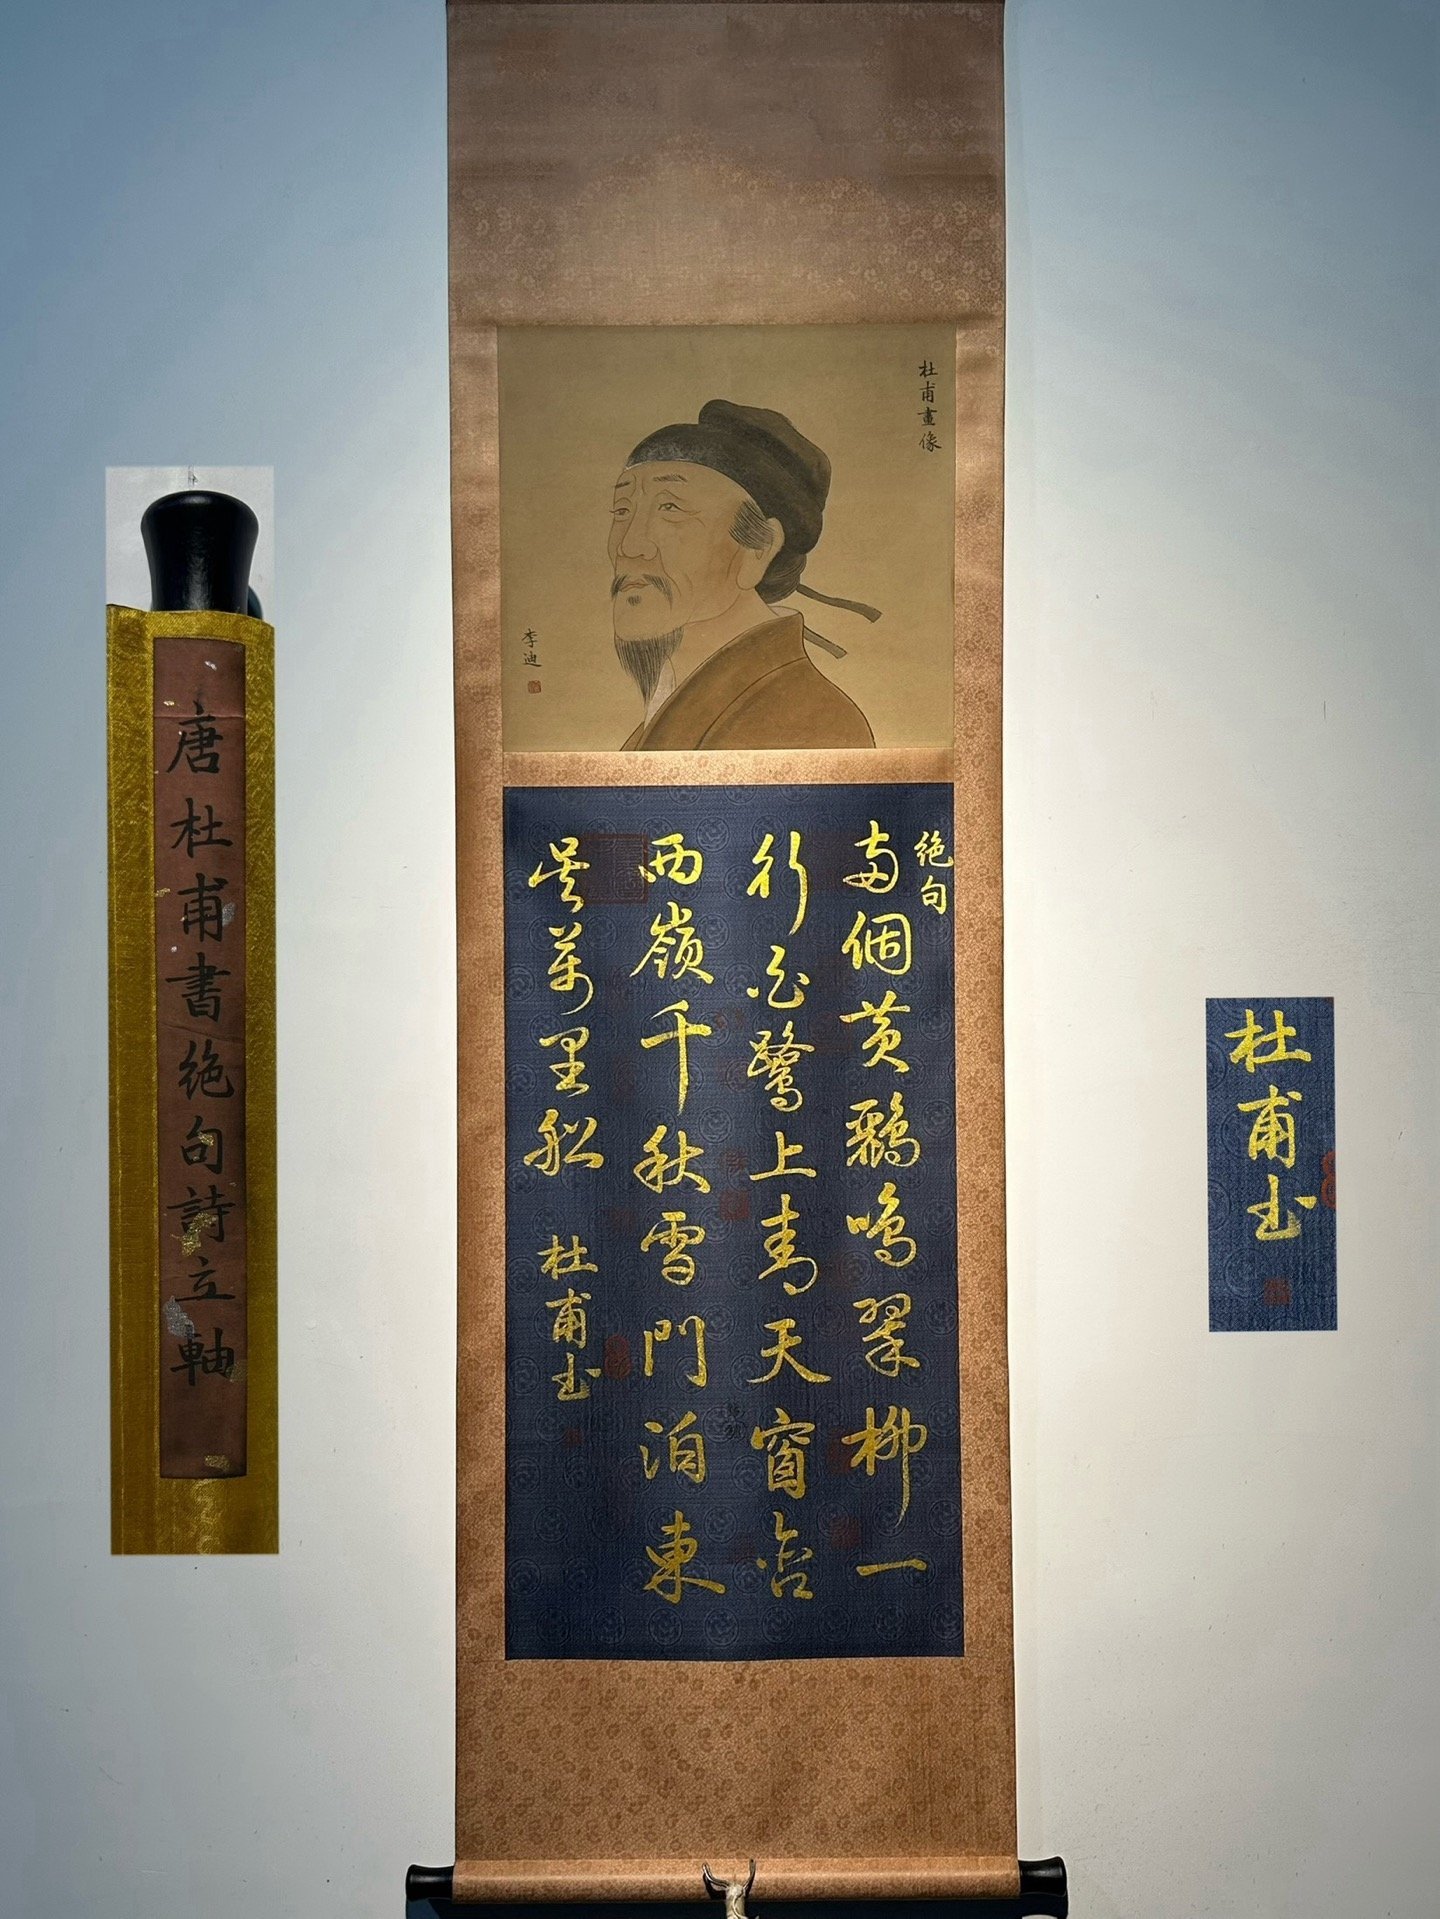 杜甫畫像
李迪
絶句
兩個黃鸝鳴翠柳一
行白鷺上青天窗含
西嶺千秋雪門泊東
吳萬里船
杜甫書
唐杜甫書絶句詩立軸
杜甫書